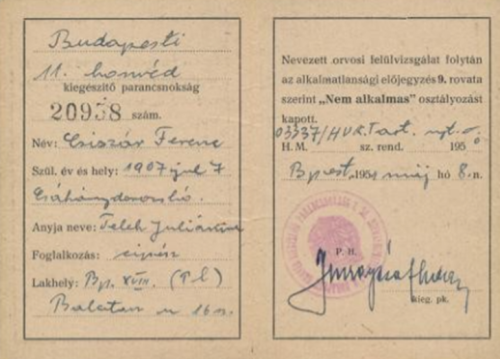 Budapesti
11. honvéd
kiegészitő parancsnokság
20958 szám.
Név: Csiszár Ferenc
Szül. év és hely: 1907 jul 7
Anyja neve: Julianna
Foglalkozás: cipész
Lakhely: Bp. XVIII.
Balaton u 16 sz.
Nevezett orvosi felülvizsgálat folytán
az alkalmatlansági előjegyzés 9. rovata
szerint „Nem alkalmas" osztályozást
kapott.
H. M. sz. rend. 1950
Bpest, 1951 máj hó 8.-n.
P. H.
kieg. pk.